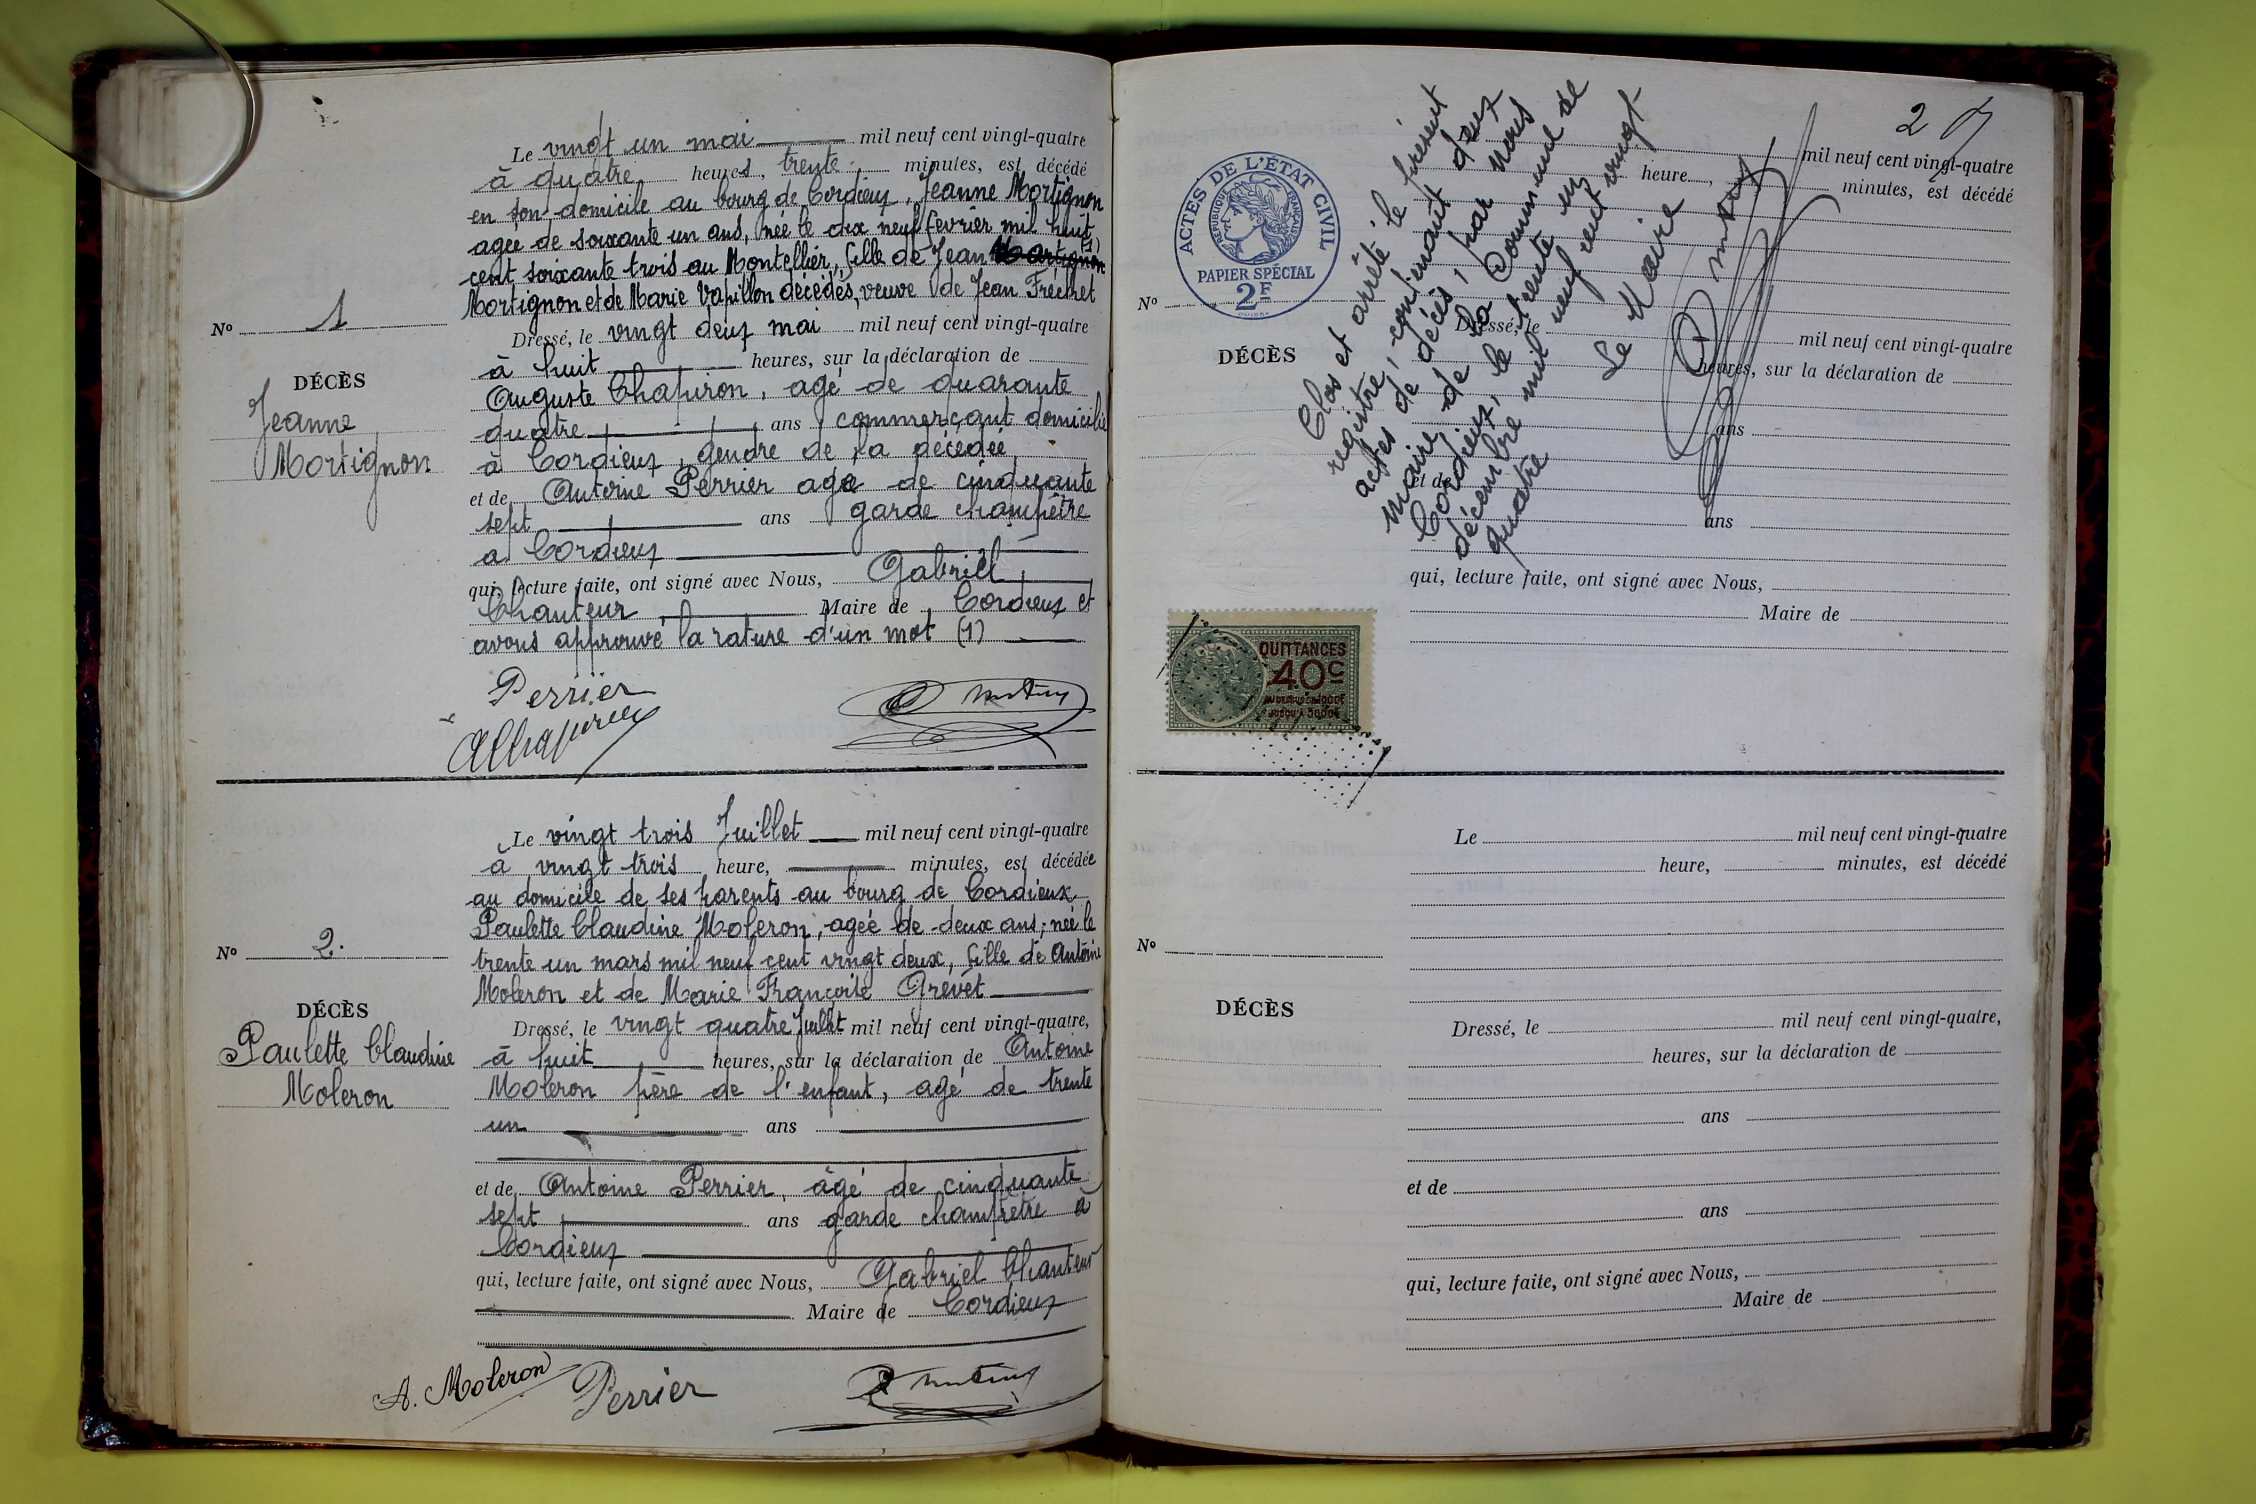 Le vingt un mai mil neuf cent vingt-quatre
à quatre heures, trente minutes, est décédé
en son domicile au bourg de Cordieux, Jeanne Mortignon
agée de soixante un ans, née le dix neuf fevrier mil huit
cent soixante trois au Montellier, fille de Jean Martignon (1)
Mortignon et de Marie Vapillon décédés, veuve de Jean Frechet
No 1
DÉCÈS
Jeanne
Mortignon
Dressé, le vingt deux mai mil neuf cent vingt-quatre
à huit heures, sur la déclaration de
Auguste Chapiron, agé de quarante
quatre ans commerçant domicilié
à Cordieux, gendre de la décédée
et de Antoine Perrier age de cinquante
sept ans garde champêtre
a Cordieux
qui, lecture faite, ont signé avec Nous, Gabriel
Chanteur, Maire de Cordieux et
avons approuvé la rature d'un mot (1)
Perrier
AChapiron
Le vingt trois Juillet mil neuf cent vingt-quatre
à vingt trois heure, minutes, est décédée
au domicile de ses parents au bourg de Cordieux
Paulette Claudine Moleron, agée de deux ans, née le
trente un mars mil neuf cent vingt deux, fille de Antoine
Moleron et de Marie Françoise Grevet
No 2.
DÉCÈS
Paulette Claudine
Moleron
Dressé, le vingt quatre Juillet mil neuf cent vingt-quatre,
à huit heures, sur la déclaration de Antoine
Moleron père de l'enfant, agé de trente
un ans
et de Antoine Perrier, âgé de cinquante
sept ans garde champêtre à
Cordieux
qui, lecture faite, ont signé avec Nous, Gabriel Chanteur
Maire de Cordieux
A. Moleron Perrier
2
ACTES DE L'ÉTAT CIVIL
RÉPUBLIQUE FRANÇAISE
PAPIER SPÉCIAL
2F
Clos et arrêté le présent
registre, contenant deux
actes de décès, par nous
maire de la Commune de
Cordieux, le trente un
décembre mil neuf cent vingt
quatre
Le Maire
mil neuf cent vingt-quatre
heure, minutes, est décédé
No
DÉCÈS
Dressé, le mil neuf cent vingt-quatre
heures, sur la déclaration de
ans
et de
ans
qui, lecture faite, ont signé avec Nous,
Maire de
QUITTANCES
40c
Le mil neuf cent vingt-quatre
heure, minutes, est décédé
No
DÉCÈS
Dressé, le mil neuf cent vingt-quatre,
heures, sur la déclaration de
ans
et de
ans
qui, lecture faite, ont signé avec Nous,
Maire de